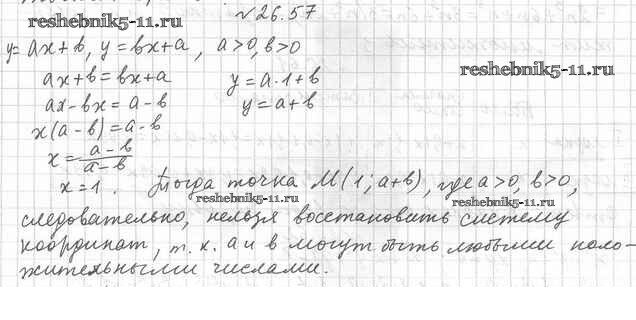 №26.57
reshebnik5-11.ru
y=ax+b, y=bx+a, a>0, b>0
reshebnik5-11.ru
ax+b=bx+a y=a·1+b
ax-bx=a-b y=a+b
x(a-b)=a-b
x=a-b/a-b
x=1. Тогда точка M(1; a+b), где a>0, b>0,
reshebnik5-11.ru reshebnik5-11.ru
следовательно, нельзя восстановить систему
координат, т.к. a и b могут быть любыми поло-
жительными числами.